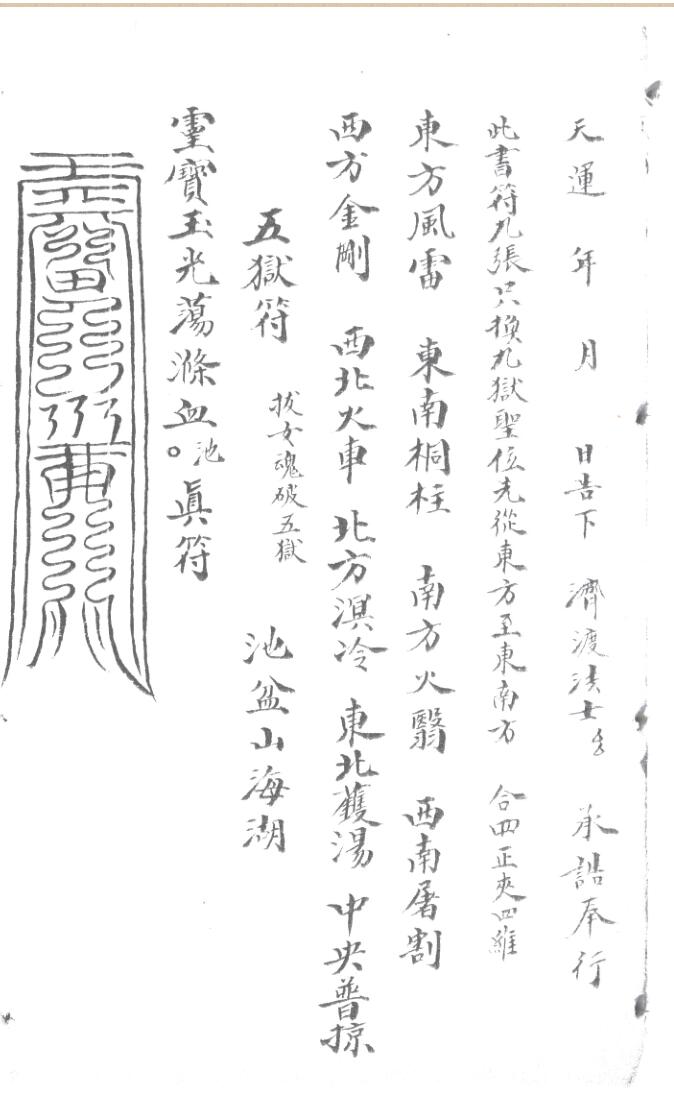 天運 年 月 日告下 濟渡法士 承誥奉行
此書符九張只換九獄聖位先從東方至東南方 合四正夾四維
東方風雷 東南桐柱 南方火翳 西南屠割
西方金剛 西北火車 北方溟冷 東北鑊湯 中央普掠
五獄符 拔女魂破五獄 池盆山海湖
靈寶玉光蕩滌血池真符